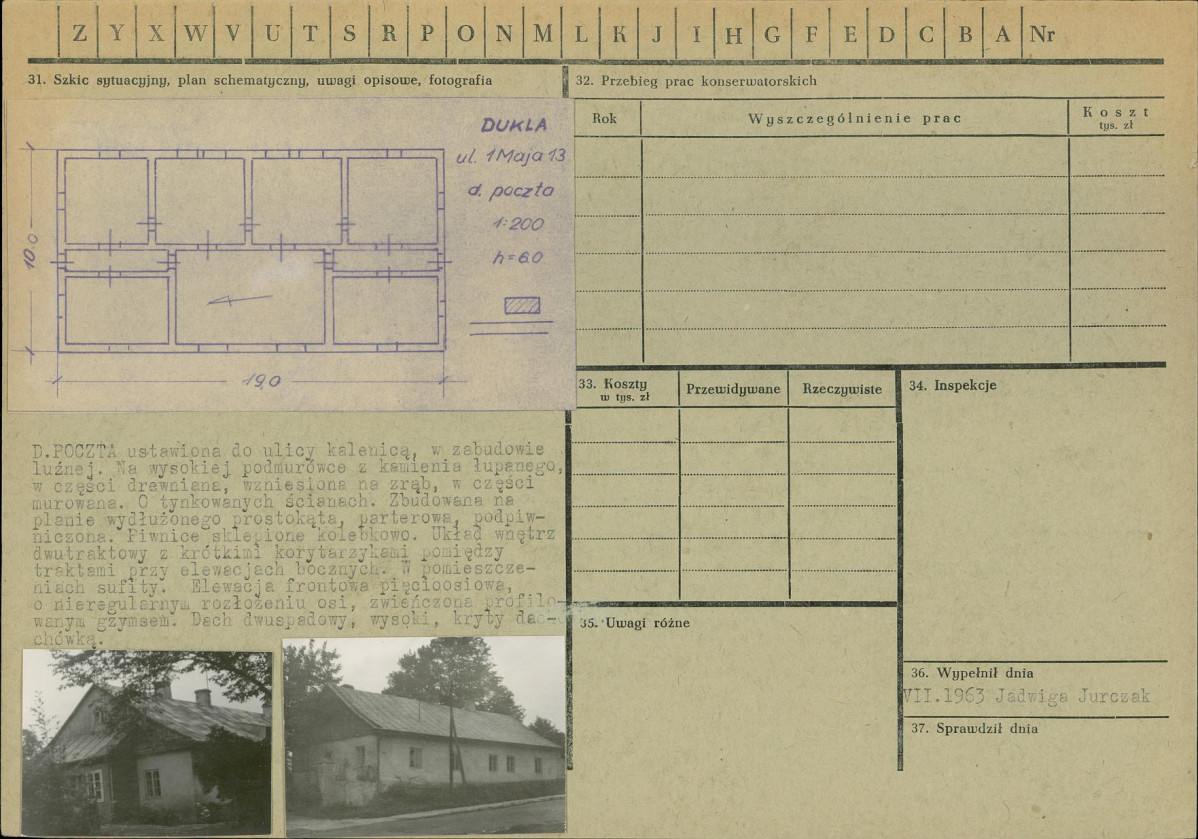 Z Y X W V U T S R P O N M L K J I H G F E D C B A Nr
31. Szkic sytuacyjny, plan schematyczny, uwagi opisowe, fotografia
DUKLA
ul. 1 Maja 13
d. poczta
1:200
h=6.0
10.0
19.0
D.POCZTA ustawiona do ulicy kalenicą, w zabudowie
luźnej. Na wysokiej podmurówce z kamienia łupanego,
w części drewniana, wzniesiona na zrąb, w części
murowana. O tynkowanych ścianach. Zbudowana na
planie wydłużonego prostokąta, parterowa, podpiw-
niczona. Piwnice sklepione kolebkowo. Układ wnętrz
dwutraktowy z krótkimi korytarzykami pomiędzy
traktami przy elewacjach bocznych. W pomieszcze-
niach sufity. Elewacja frontowa pięcioosiowa,
o nieregularnym rozłożeniu osi, zwieńczona profilo-
wanym gzymsem. Dach dwuspadowy, wysoki, kryty da-
chówką.
32. Przebieg prac konserwatorskich
Rok
Wyszczególnienie prac
Koszt
tys. zł
33. Koszty
w tys. zł
Przewidywane
Rzeczywiste
34. Inspekcje
35. Uwagi różne
36. Wypełnił dnia
VII.1963 Jadwiga Jurczak
37. Sprawdził dnia